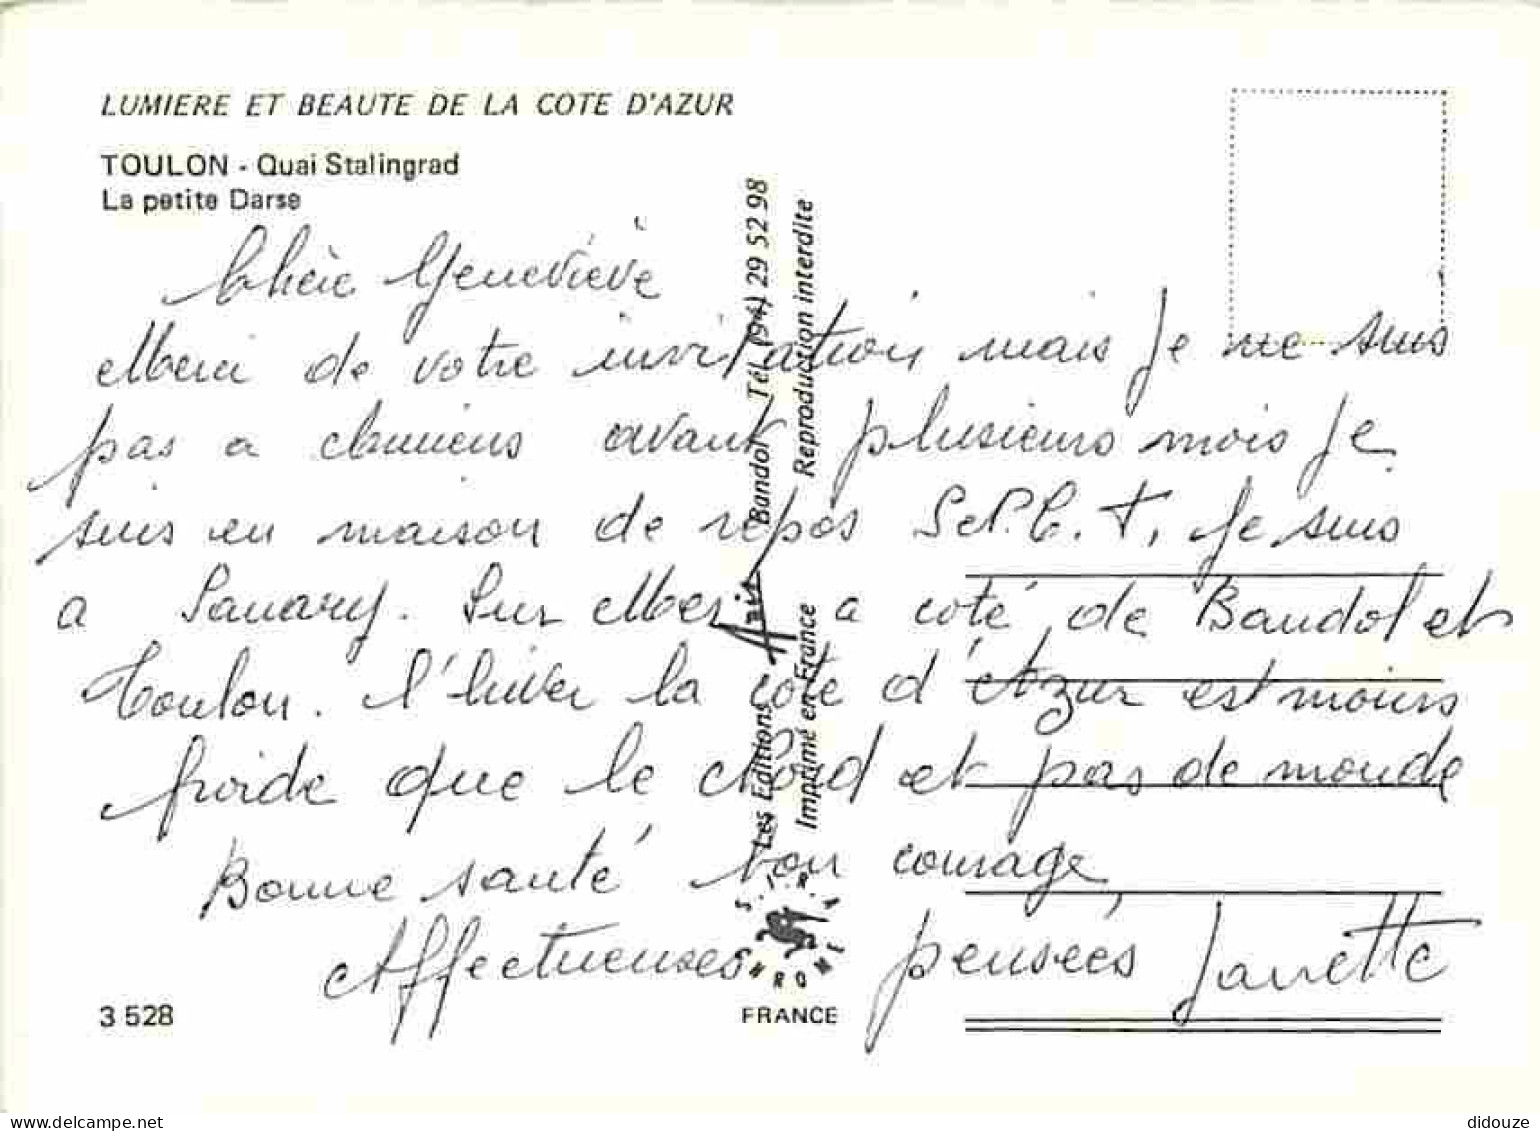 LUMIERE ET BEAUTE DE LA COTE D'AZUR
TOULON - Quai Stalingrad
La petite Darse
Chère Geneviève
Merci de votre invitation mais je ne suis
pas a avant plusieurs mois je
suis en maison de repos S.P.C.T. je suis
a Sanary. Sur Mer a coté de Bandol et
Toulon. l'hiver la cote d'Azur est moins
froide que le Nord et pas de monde
Bonne santé bon courage
Affectueuses pensées Janette
Les Editions Aris Bandol Tél. (94) 29 52 98
Imprimé en France Reproduction interdite
S.I.R.A.
KROMO
FRANCE
3 528
delcampe.net
didouze